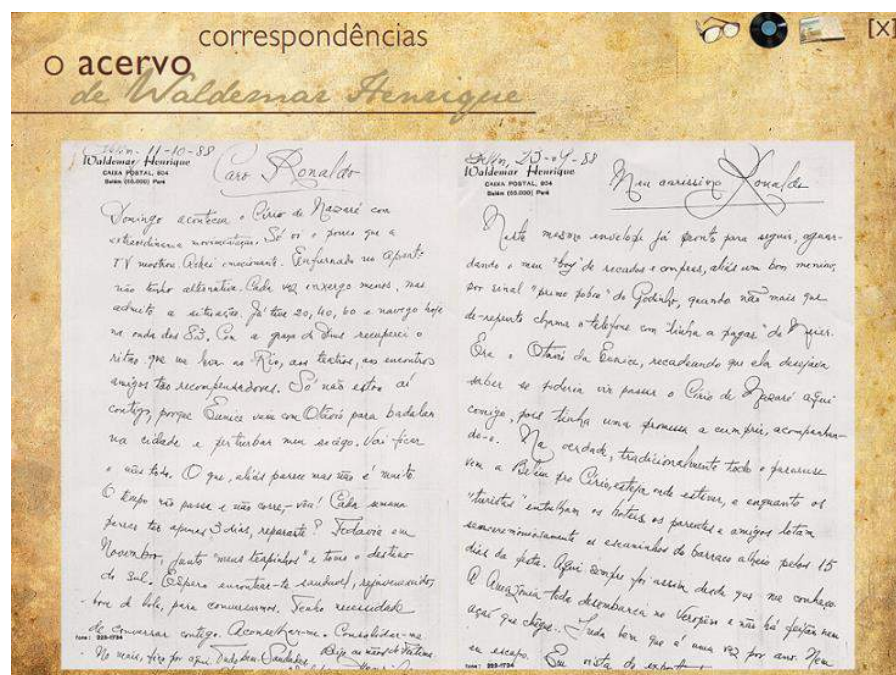 correspondências
o acervo
de Waldemar Henrique
[X]
Belém - 11-10-88
Waldemar Henrique
CAIXA POSTAL, 804
Belém (66.000) Pará
Caro Ronaldo
Domingo aconteceu o Círio de Nazaré com
extraordinária movimentação. Só vi o pouco que a
TV mostrou. Achei emocionante. Enfurnado no apartº
não tenho alternativa. Cada vez enxergo menos, mas
admito a situação. Já tive 20, 40, 60 e navego hoje
na onda dos 83. Com a graça de Deus recuperei o
ritmo que me leva ao Rio, aos teatros, aos encontros
amigos tão recompensadores. Só não estou aí
contigo, porque Eunice vem com Otávio para badalar
na cidade e perturbar meu sossego. Vai ficar
o mês todo. O que, aliás parece mas não é muito.
O tempo não passa e não corre, - vôa! Cada semana
parece ter apenas 3 dias, reparaste? Todavia em
Novembro, junto "meus trapinhos" e tomo o destino
do sul. Espero encontrar-te saudável, rejuvenescido,
bom de bola, para conversarmos. Tenho necessidade
de conversar contigo. Aconselhar-me. Consolidar-me.
No mais, fico por aqui. Tudo bem. Saudades.
fone: 223-1734
Belém, 23-09-88
Waldemar Henrique
CAIXA POSTAL, 804
Belém (66.000) Pará
Meu caríssimo Ronaldo
Neste mesmo envelope já pronto para seguir, aguar-
dando o meu "boy" de recados e compras, aliás um bom menino,
por sinal "primo pobre" do Godinho, quando não mais que
de-repente chama o telefone com "linha a pagar" do Meier.
Era o Otávio da Eunice, recadeando que ela desejava
saber se poderia vir passar o Círio de Nazaré aqui
comigo, pois tinha uma promessa a cumprir, acompanhan-
do-o. Na verdade, tradicionalmente todo o paraense
vem a Belém pro Círio, esteja onde estiver, e enquanto os
"turistas" entulham os hoteis, os parentes e amigos lotam
sem cerimoniosamente os escaninhos do barraco alheio pelos 15
dias da festa. Aqui sempre foi assim desde que me conheço.
A Amazônia toda desembarca no Veropeso e não há feijão nem
açaí que chegue. Inda bem que é uma vez por ano. Nem
eu escapo. Em vista do
fone: 223-1734